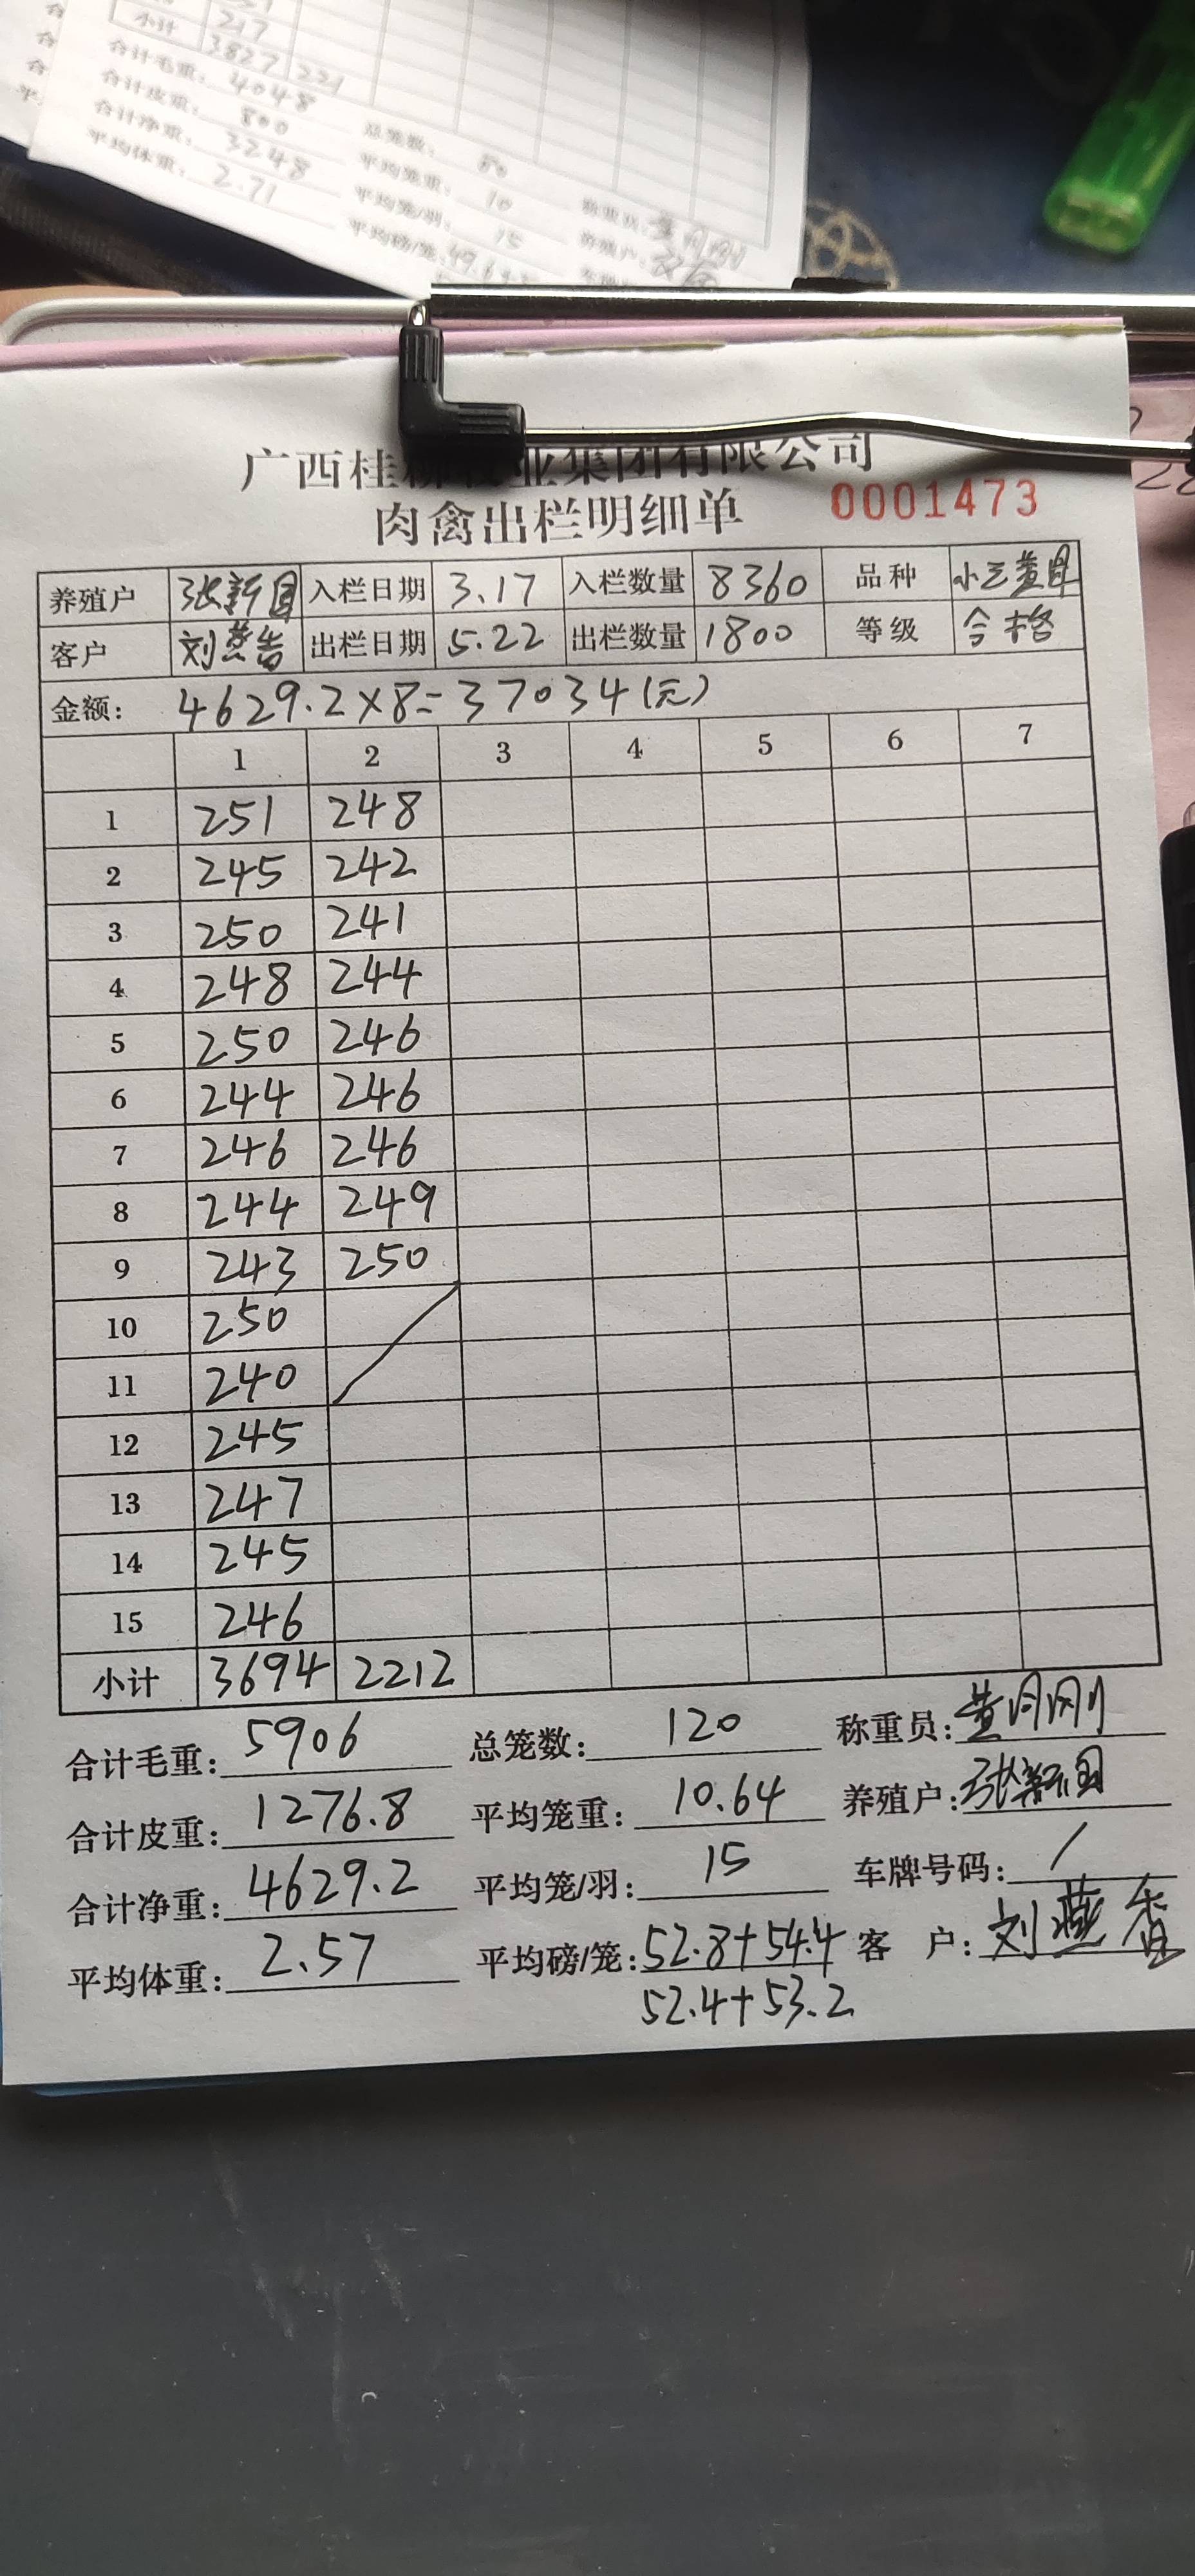 小计 3827 221
合计毛重: 4048
合计皮重: 800 总笼数: 80
合计净重: 3248 平均笼重: 10
平均体重: 2.71 平均笼/羽: 15
平均磅/笼:
广西桂 业集团有限公司
肉禽出栏明细单 0001473
养殖户 张新国 入栏日期 3.17 入栏数量 8360 品种
客户 刘燕香 出栏日期 5.22 出栏数量 1800 等级 合格
金额: 4629.2×8=37034(元)
1 2 3 4 5 6 7
1 251 248
2 245 242
3 250 241
4 248 244
5 250 246
6 244 246
7 246 246
8 244 249
9 243 250
10 250
11 240
12 245
13 247
14 245
15 246
小计 3694 2212
合计毛重: 5906 总笼数: 120 称重员: 黄月刚
合计皮重: 1276.8 平均笼重: 10.64 养殖户: 张新国
合计净重: 4629.2 平均笼/羽: 15 车牌号码: /
平均体重: 2.57 平均磅/笼: 52.8+54.4 客 户: 刘燕香
52.4+53.2